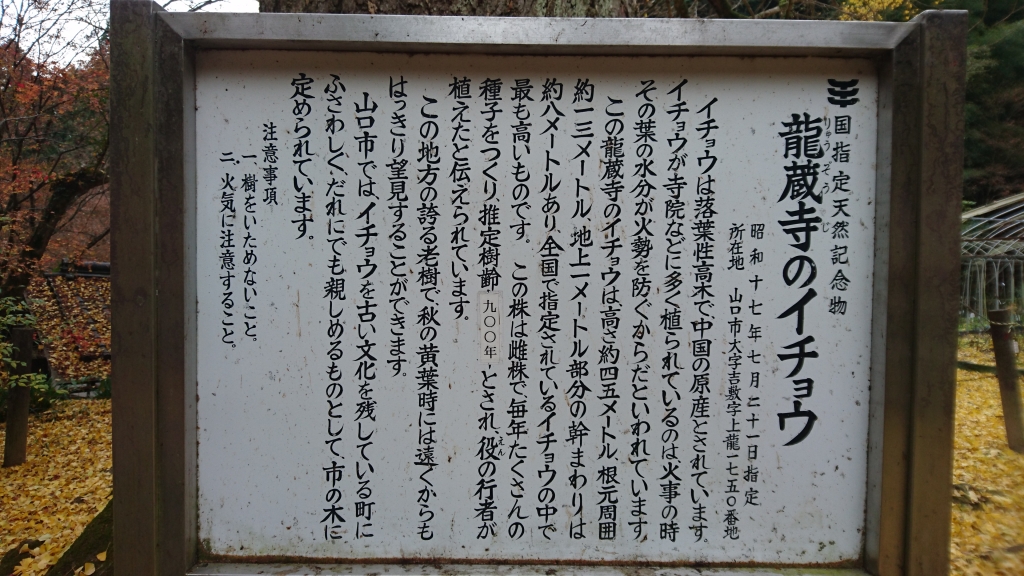 国指定天然記念物
龍蔵寺のイチョウ
りゅうぞうじ
昭和十七年七月二十一日指定
所在地 山口市大字吉敷字上龍一七五〇番地
イチョウは落葉性高木で、中国の原産とされています。
イチョウが寺院などに多く植られているのは火事の時
その葉の水分が火勢を防ぐからだといわれています。
この龍蔵寺のイチョウは、高さ約四五メートル、根元周囲
約一三メートル、地上一メートル部分の幹まわりは
約八メートルあり、全国で指定されているイチョウの中で
最も高いものです。 この株は雌株で、毎年たくさんの
種子をつくり、推定樹齢九〇〇年とされ、役の行者が
えん
植えたと伝えられています。
この地方の誇る老樹で、秋の黄葉時には遠くからも
はっきり望見することができます。
山口市では、イチョウを古い文化を残している町に
ふさわしく、だれにでも親しめるものとして、市の木に
定められています。
注意事項
一、樹をいためないこと。
二、火気に注意すること。